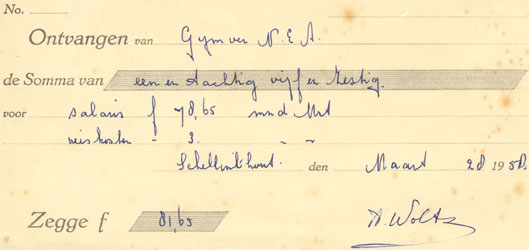 No.
Ontvangen van Gymver N.E.A.
de Somma van een en tachtig vijf en zestig.
voor salaris f 78,65 mnd Mrt
reiskosten - 3. " "
Schellinkhout. den Maart 28 1958.
Zegge f 81,65